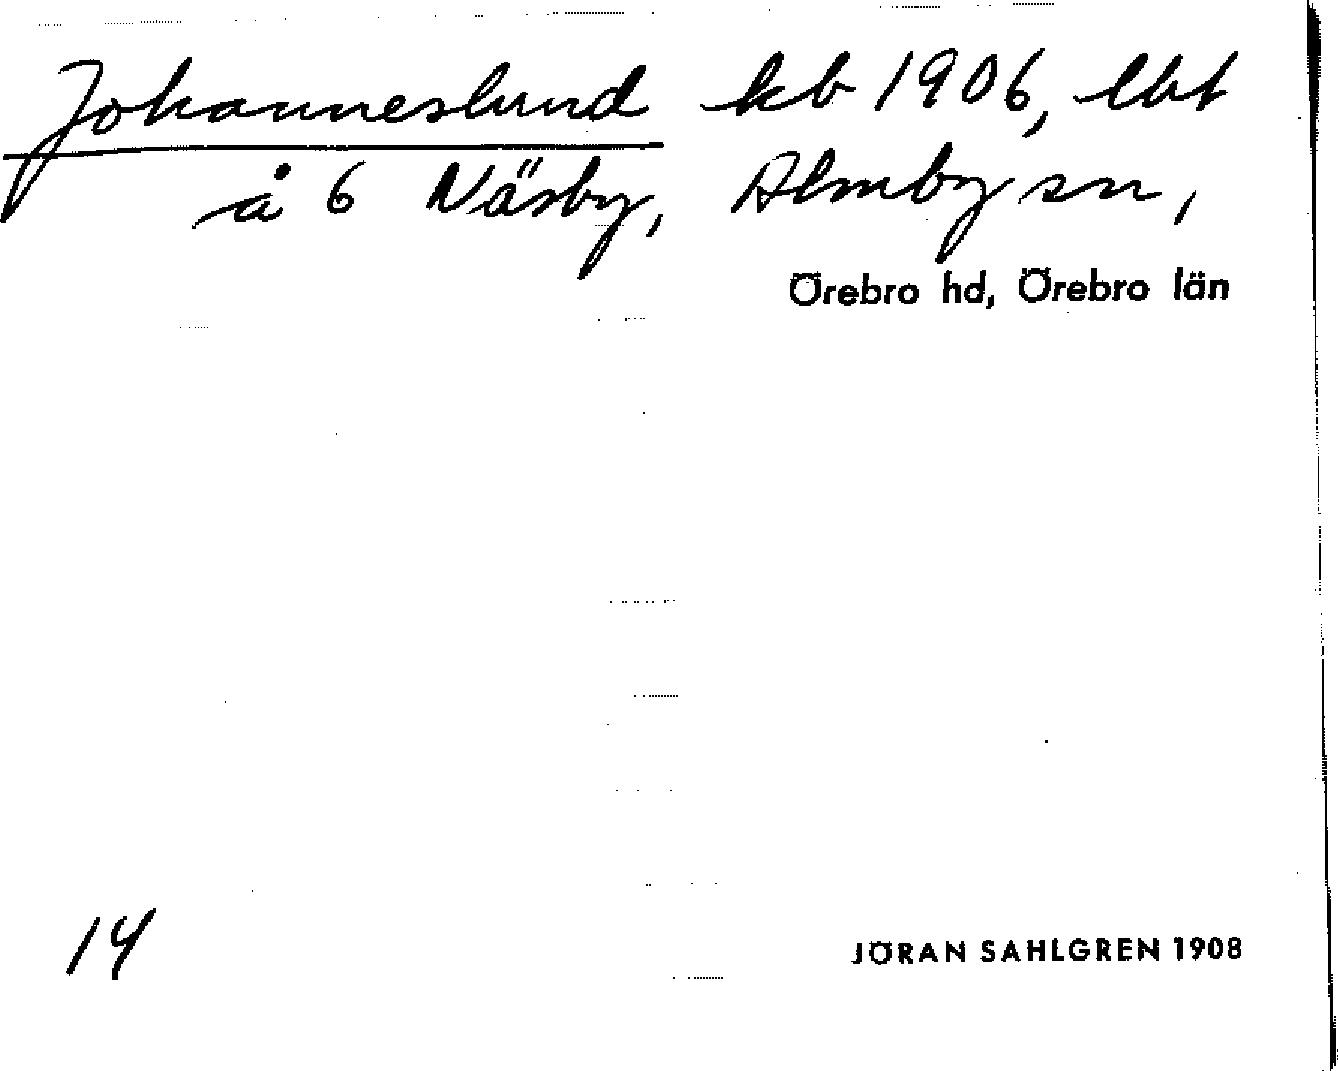 Johanneslund kb 1906, lht
å 6 Näsby, Almby sn,
Örebro hd, Örebro län
14
JÖRAN SAHLGREN 1908